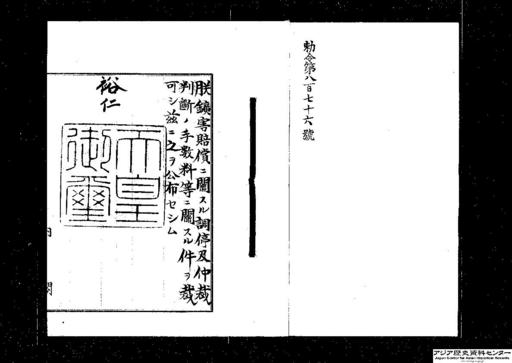 勅令第八百七十六號
朕鑛害賠償ニ關スル調停及仲裁
判斷ノ手數料等ニ關スル件ヲ裁
可シ茲ニ之ヲ公布セシム
裕仁
天皇
御璽
内閣
アジア歴史資料センター
Japan Center for Asian Historical Records